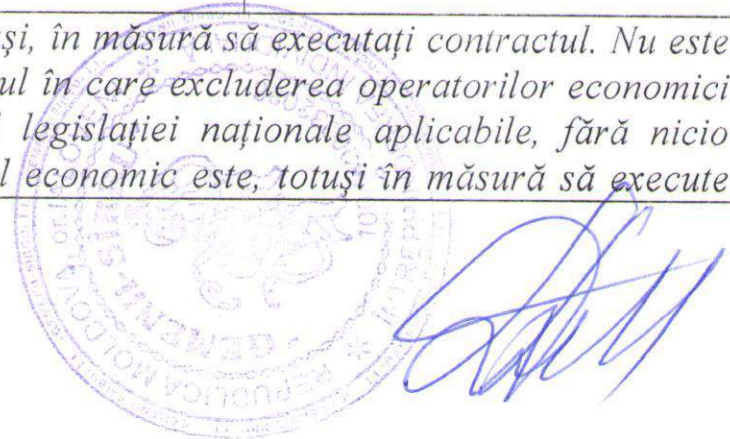 și, în măsură să executați contractul. Nu este
ul în care excluderea operatorilor economici
legislației naționale aplicabile, fără nicio
l economic este, totuși în măsură să execute
REPUBLICA MOLDOVA